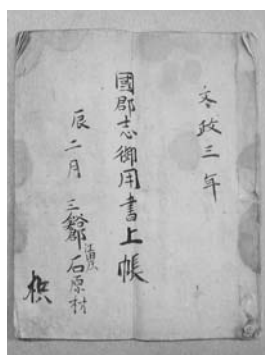 文政三年
國郡志御用書上帳
辰二月
三谿郡
石原村